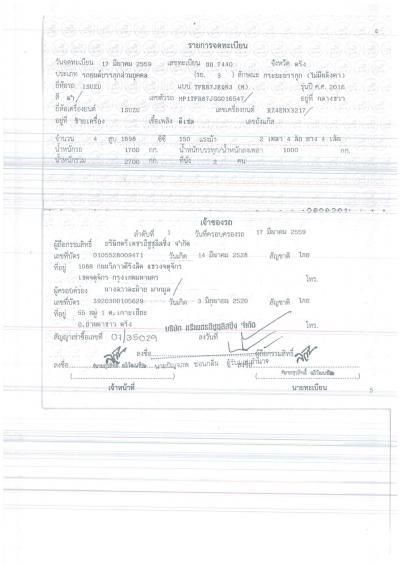 รายการจดทะเบียน
วันจดทะเบียน 17 มีนาคม 2559 เลขทะเบียน บย 7440 จังหวัด ตรัง
ประเภท รถยนต์บรรทุกส่วนบุคคล (รย. 3) ลักษณะ กระบะบรรทุก (ไม่มีหลังคา)
ยี่ห้อรถ ISUZU แบบ รุ่นปี ค.ศ. 2016
สี ดำ เลขตัวรถ MP1TFR87JGG016547 อยู่ที่ กลางขวา
ยี่ห้อเครื่องยนต์ ISUZU เลขเครื่องยนต์ RZ4EMX3217
อยู่ที่ ซ้ายเครื่อง เชื้อเพลิง ดีเซล เลขถังแก๊ส
จำนวน 4 สูบ 1898 ซีซี 150 แรงม้า 2 เพลา 4 ล้อ ยาง 4 เส้น
น้ำหนักรถ 1700 กก. น้ำหนักบรรทุก/น้ำหนักลงเพลา 1000 กก.
น้ำหนักรวม 2700 กก. ที่นั่ง 2 คน
เจ้าของรถ
ลำดับที่ 1 วันที่ครอบครองรถ 17 มีนาคม 2559
ผู้ถือกรรมสิทธิ์ บริษัทตรีเพชรอีซูซุลิสซิ่ง จำกัด
เลขที่บัตร 0105528009471 วันเกิด 14 มีนาคม 2528 สัญชาติ ไทย
ที่อยู่ 1088 ถนนวิภาวดีรังสิต แขวงจตุจักร
เขตจตุจักร กรุงเทพมหานคร โทร.
ผู้ครอบครอง
เลขที่บัตร 3920300105629 วันเกิด 3 มิถุนายน 2520 สัญชาติ ไทย
ที่อยู่ 55 หมู่ 1 ต.เกาะเปียะ
อ.ย่านตาขาว ตรัง โทร.
บริษัท ตรีเพชรอีซูซุลิสซิ่ง จำกัด
สัญญาเช่าซื้อเลขที่ ลงวันที่
ลงชื่อ ผู้ถือกรรมสิทธิ์
ลงชื่อ ลงชื่อ
เจ้าหน้าที่ นายทะเบียน
5